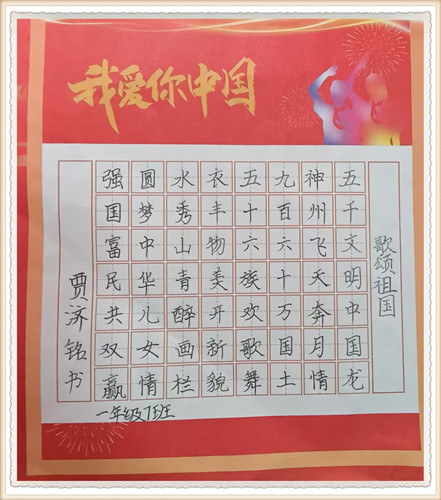 我爱你中国
歌颂祖国
五千文明中国龙
神州飞天奔月情
九百六十万国土
五十六族欢歌舞
衣丰物美开新貌
水秀山青醉画栏
圆梦中华儿女情
强国富民共双赢
贾济铭书
一年级7班